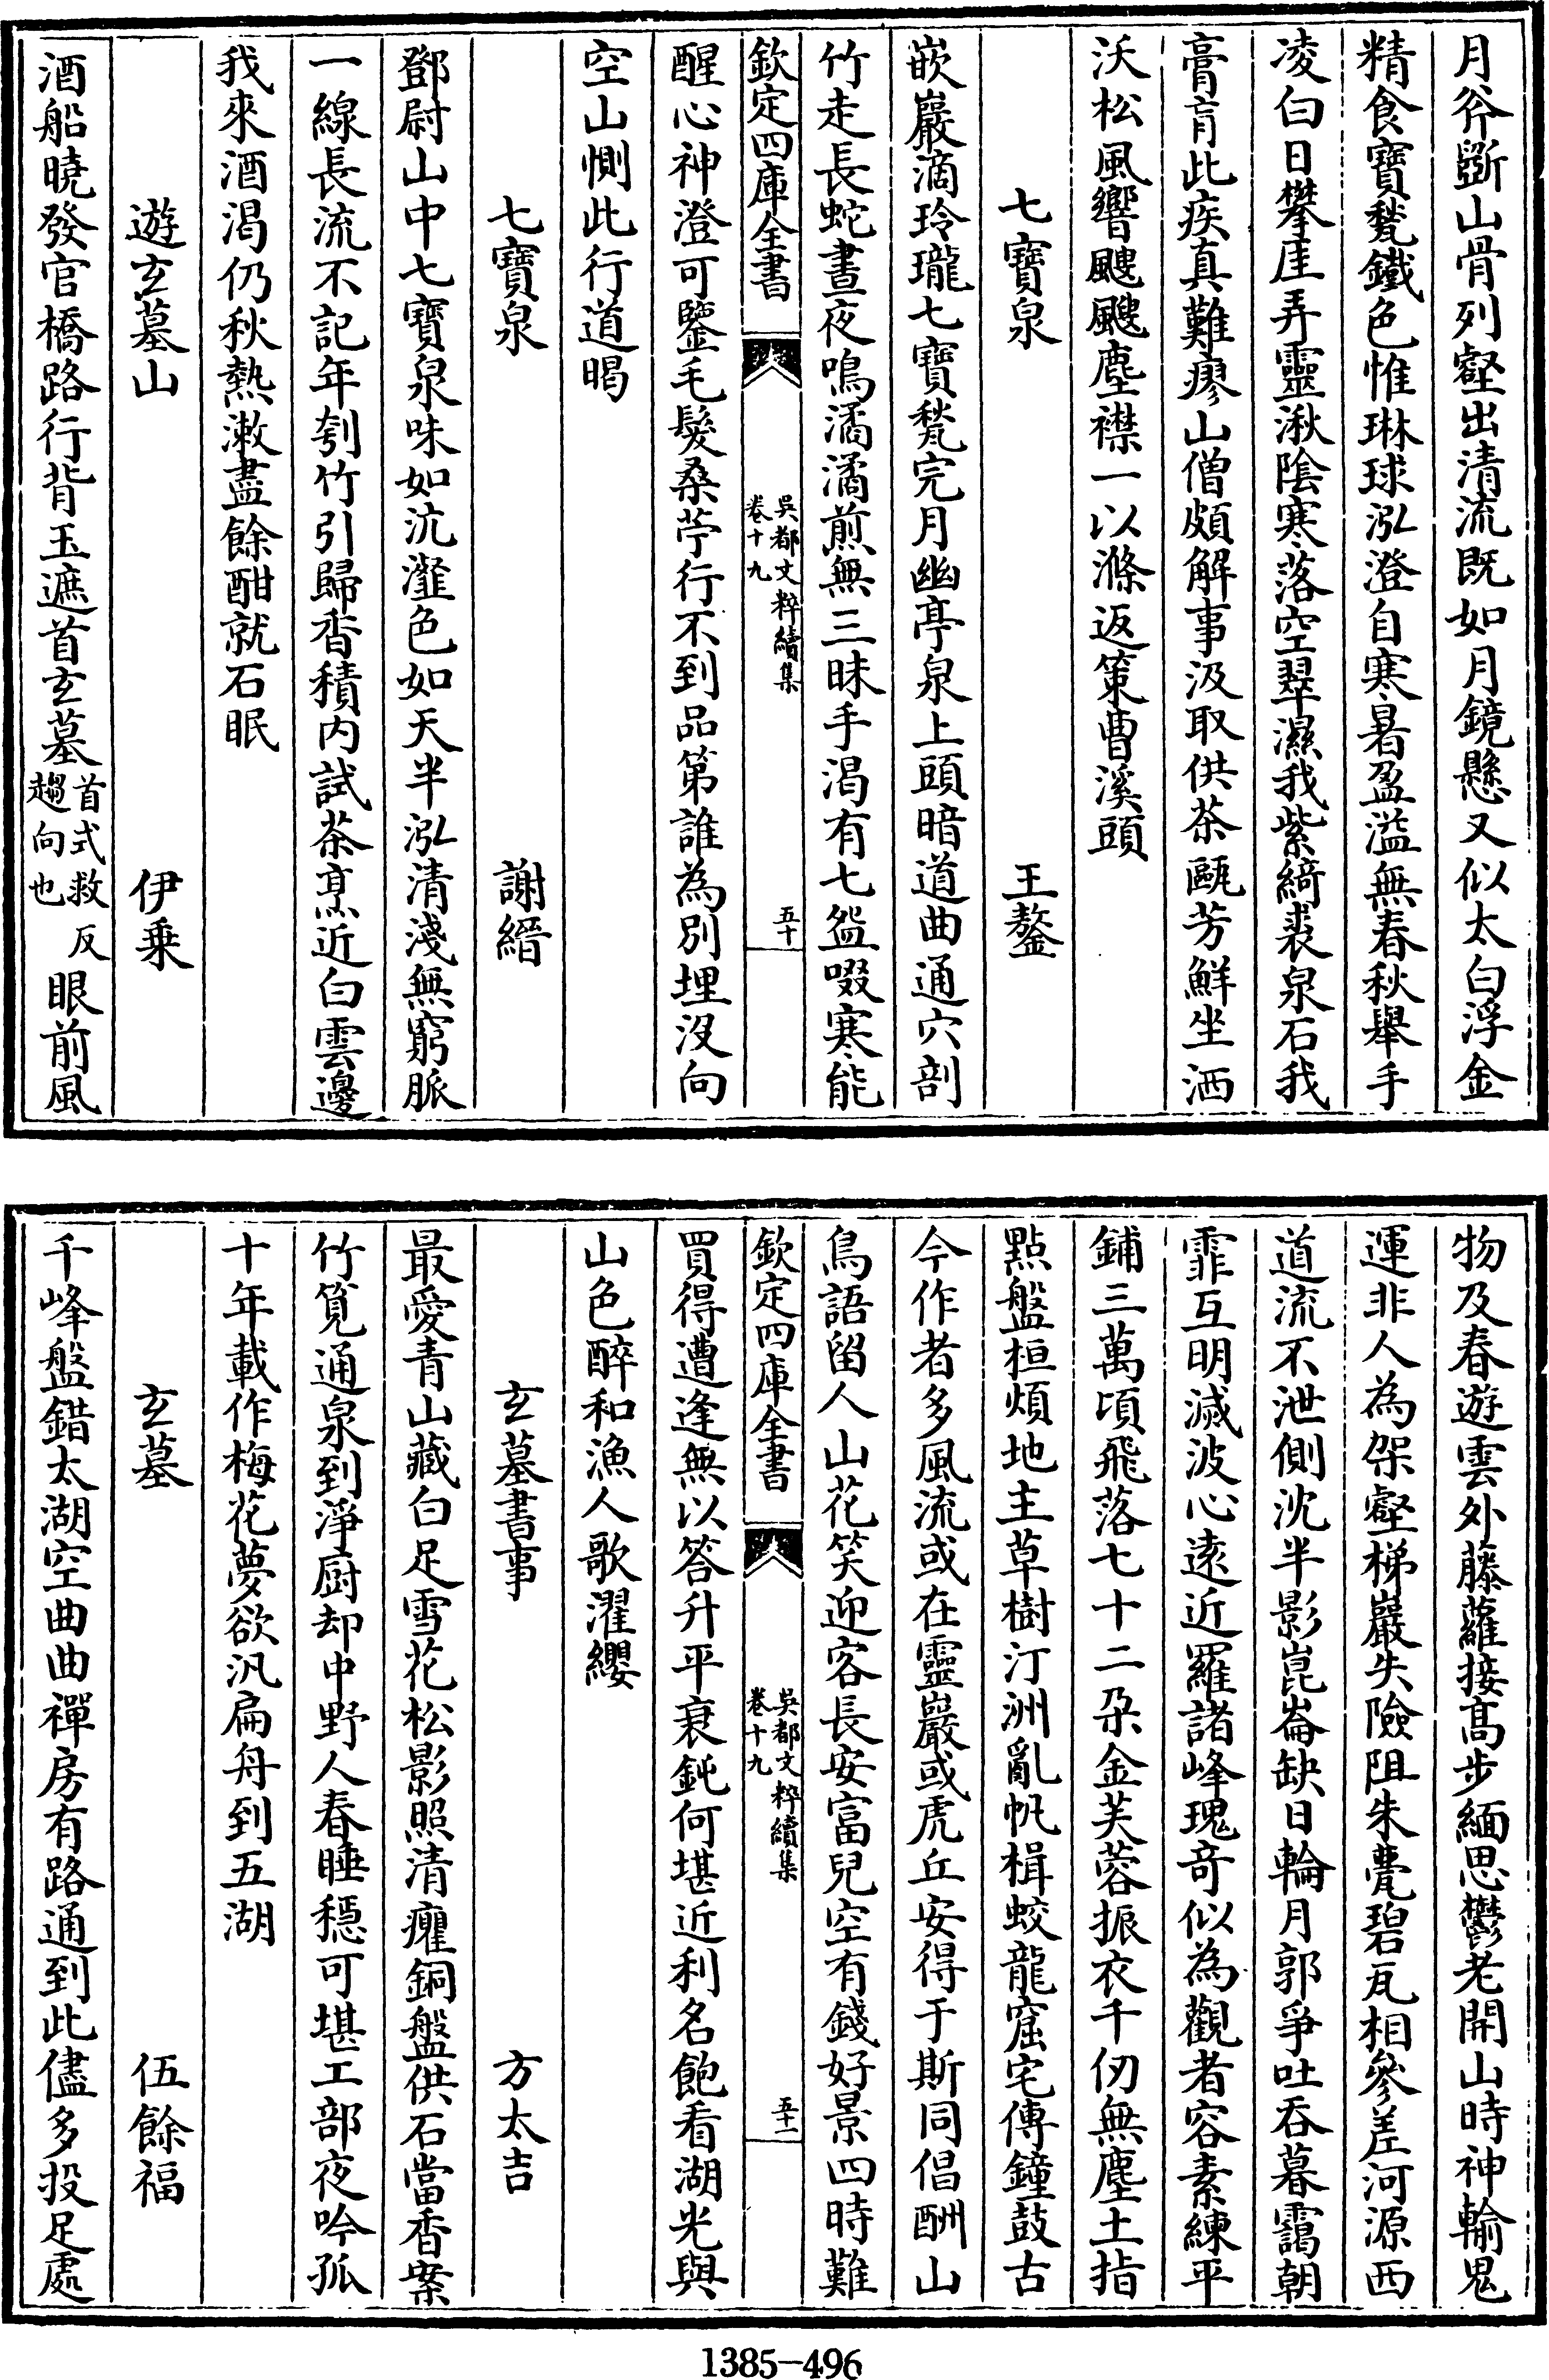 月斧斵山骨列壑出清流既如月鏡懸又似太白浮金
精食寶甃鐵色惟琳球泓澄自寒暑盈溢無春秋舉手
凌白日攀厓弄靈湫陰寒落空翠濕我紫綺裘泉石我
膏肓此疾真難瘳山僧頗解事汲取供茶甌芳鮮坐洒
沃松風響颼飀塵襟一以滌返策曹溪頭
七寶泉 王鏊
嵌巖滴玲瓏七寶甃完月幽亭泉上頭暗道曲通穴剖
竹走長蛇晝夜鳴潏潏煎無三昧手渴有七盌啜寒能
欽定四庫全書 吳都文粹續集 卷十九 五十
醒心神澄可鑒毛髮桑苧行不到品第誰為別埋沒向
空山惻此行道暍
七寶泉 謝縉
鄧尉山中七寶泉味如沆瀣色如天半泓清淺無窮脈
一線長流不記年刳竹引歸香積内試茶烹近白雲邊
我來酒渴仍秋熱漱盡餘酣就石眠
遊玄墓山 伊乗
酒船曉發官橋路行背玉遮首玄墓首式救反趨向也眼前風
物及春遊雲外藤蘿接髙步緬思鬱老開山時神輸鬼
運非人為架壑梯巖失險阻朱甍碧瓦相參差河源西
道流不泄側沈半影崑崙缺日輪月郭爭吐吞暮靄朝
霏互明滅波心遠近羅諸峰瑰竒似為觀者容素練平
鋪三萬頃飛落七十二朶金芙蓉振衣千仞無塵土指
點盤桓煩地主草樹汀洲亂帆楫蛟龍窟宅傳鐘鼓古
今作者多風流或在靈巖或虎丘安得于斯同倡酬山
鳥語留人山花笑迎客長安富兒空有錢好景四時難
欽定四庫全書 吳都文粹續集 卷十九 五十一
買得遭逢無以答升平衰鈍何堪近利名飽看湖光與
山色醉和漁人歌濯纓
玄墓書事 方太吉
最愛青山藏白足雪花松影照清癯銅盤供石當香案
竹筧通泉到淨廚却中野人春睡穏可堪工部夜吟孤
十年載作梅花夢欲汎扁舟到五湖
玄墓 伍餘福
千峰盤錯太湖空曲曲禪房有路通到此儘多投足處
1385-496